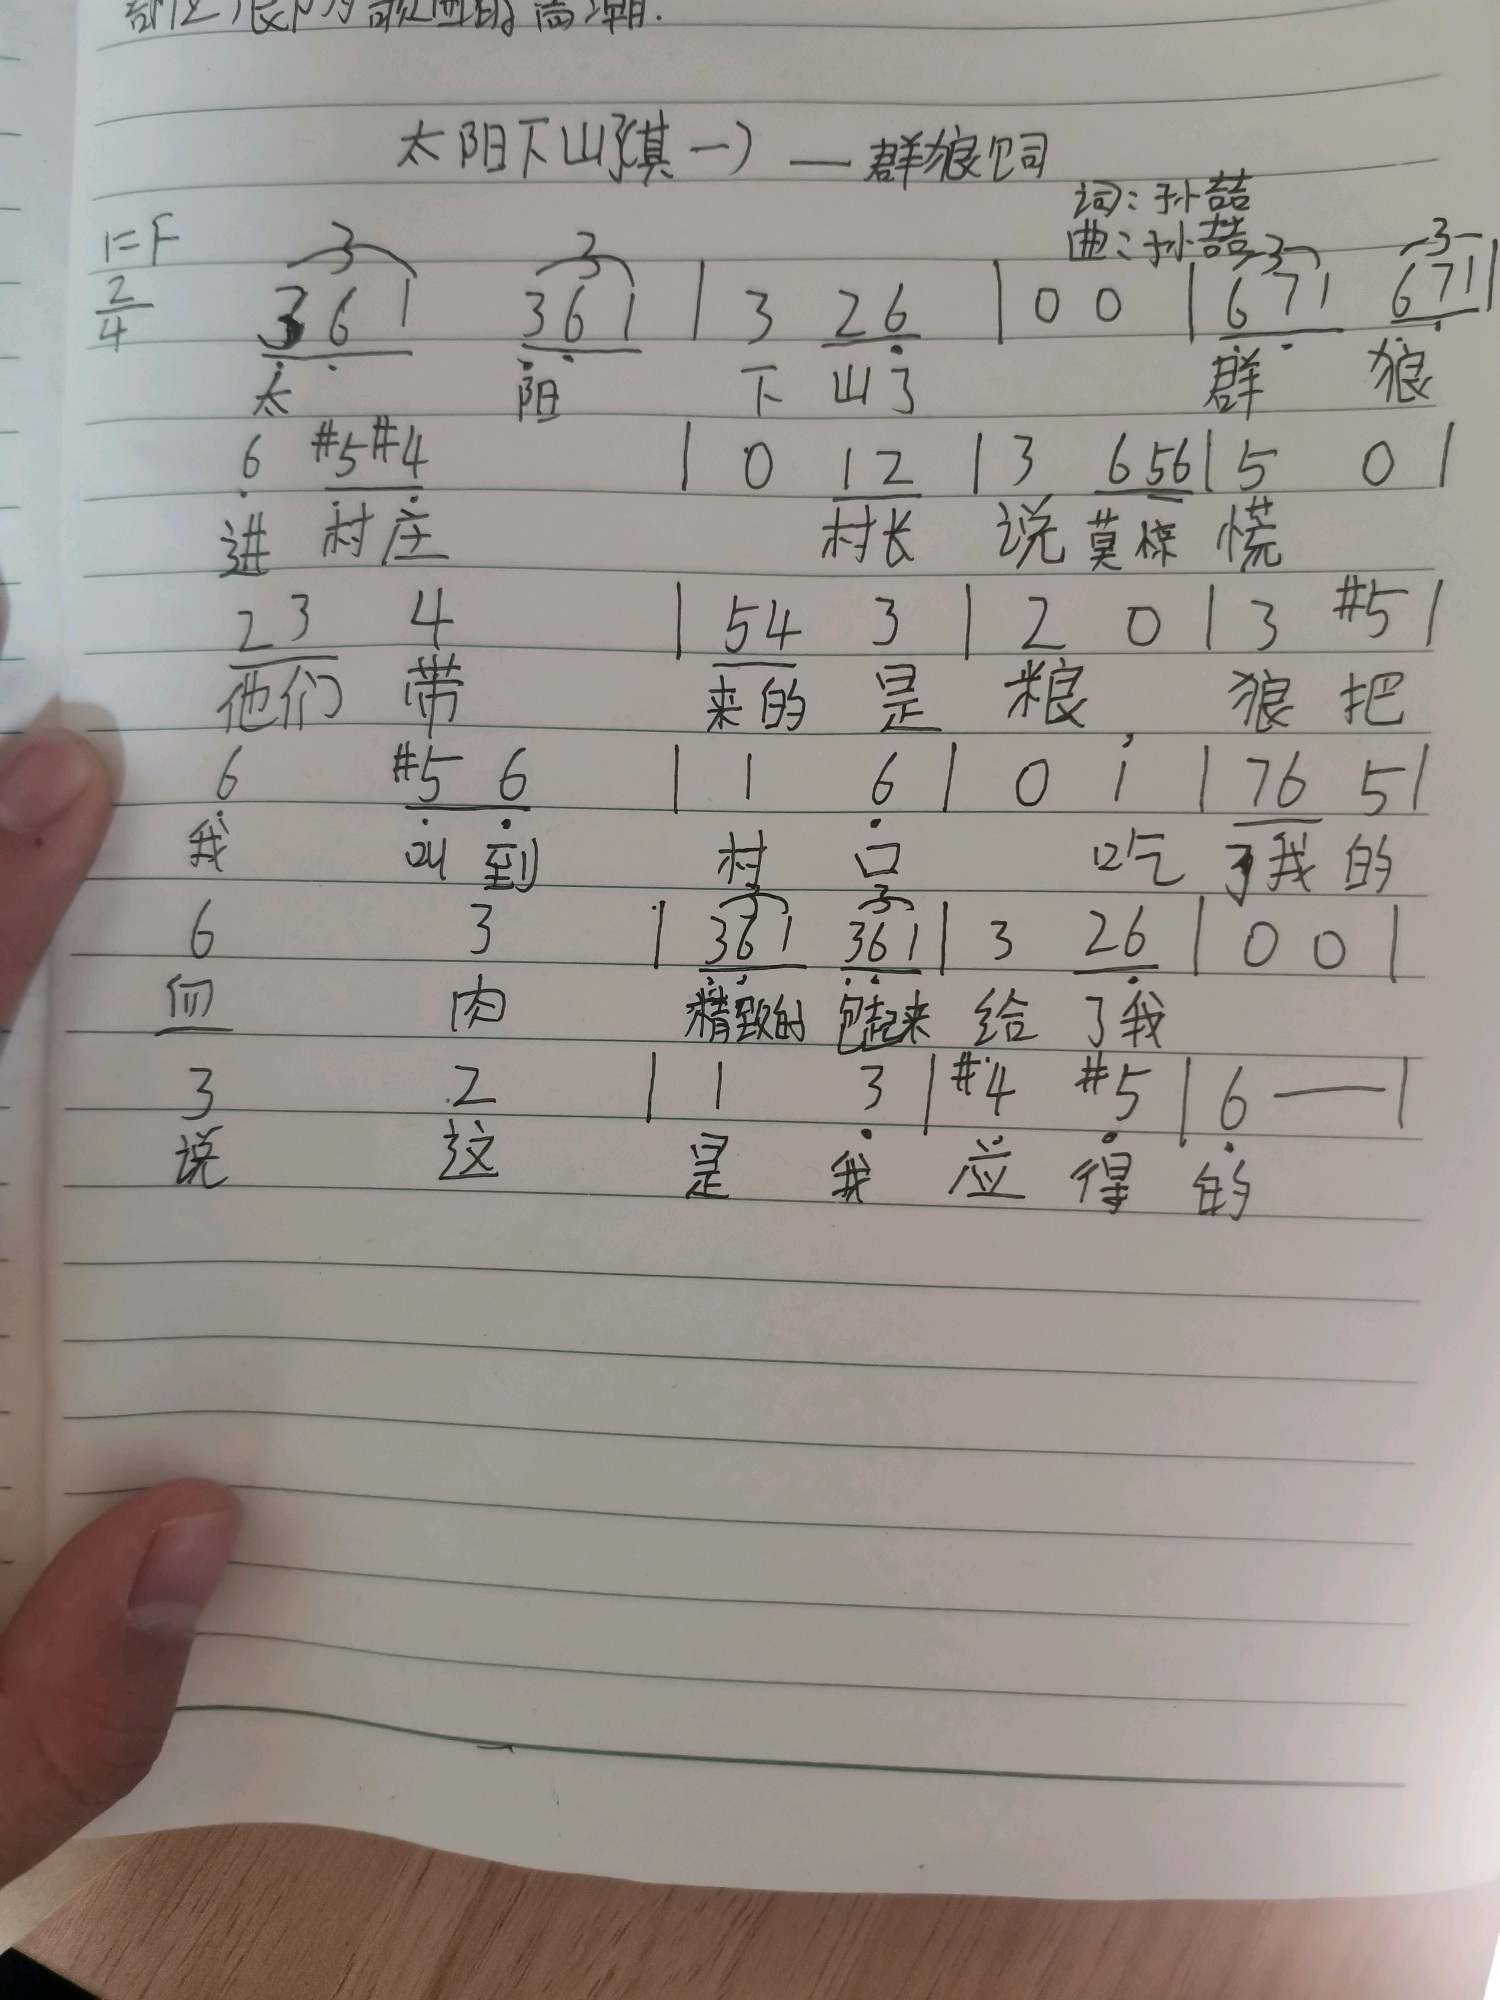 太阳下山了(其一)——群狼饲
词:孙喆
曲:孙喆
1=F
2/4
3 3 3 3
361 361 | 3 26 | 0 0 | 671 671 |
太 阳 下 山了 群 狼
6 #5#4 | 0 12 | 3 656 | 5 0 |
进 村庄 村长 说 莫惊 慌
23 4 | 54 3 | 2 0 | 3 #5 |
他们 带 来的 是 粮, 狼 把
6 #5 6 | 1 6 | 0 1 | 76 5 |
我 叫到 村 口 吃 了我 的
3 3
6 3 | 361 361 | 3 26 | 0 0 |
血 肉 精致的 包起来 给 了我
3 2 | 1 3 | #4 #5 | 6 — |
说 这 是 我 应 得 的